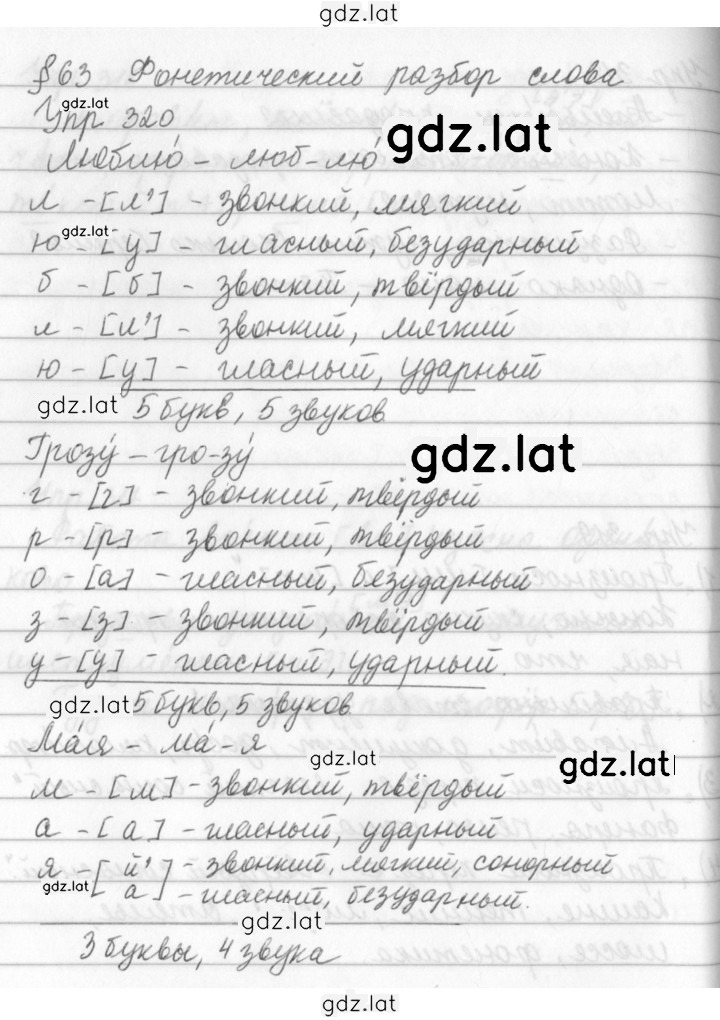 gdz.lat
§63 Фонетический разбор слова
gdz.lat
Упр 320
gdz.lat
Люблю́ – люб-лю́
л - [л'] - звонкий, мягкий
gdz.lat
ю - [у] - гласный, безударный
б - [б] - звонкий, твёрдый
л - [л'] - звонкий, мягкий
ю - [у] - гласный, ударный
gdz.lat 5 букв, 5 звуков
Грозу́ – гро-зу́
gdz.lat
г - [г] - звонкий, твёрдый
р - [р] - звонкий, твёрдый
о - [а] - гласный, безударный
з - [з] - звонкий, твёрдый
у - [у] - гласный, ударный.
gdz.lat 5 букв, 5 звуков
Ма́я – ма́-я
gdz.lat
gdz.lat
м - [м] - звонкий, твёрдый
а - [а] - гласный, ударный
я - [й'] - звонкий, мягкий, сонорный
gdz.lat [а] - гласный, безударный.
gdz.lat
3 буквы, 4 звука
gdz.lat